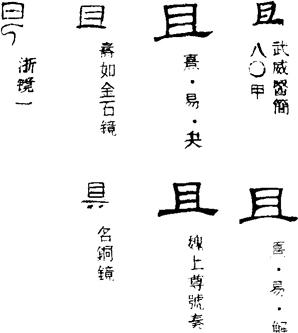 且
武威醫簡
八〇甲
且
熹·易·夬
且
壽如金石镜
浙镜一
且
熹·易·解
且
上尊號奏
名銅镜